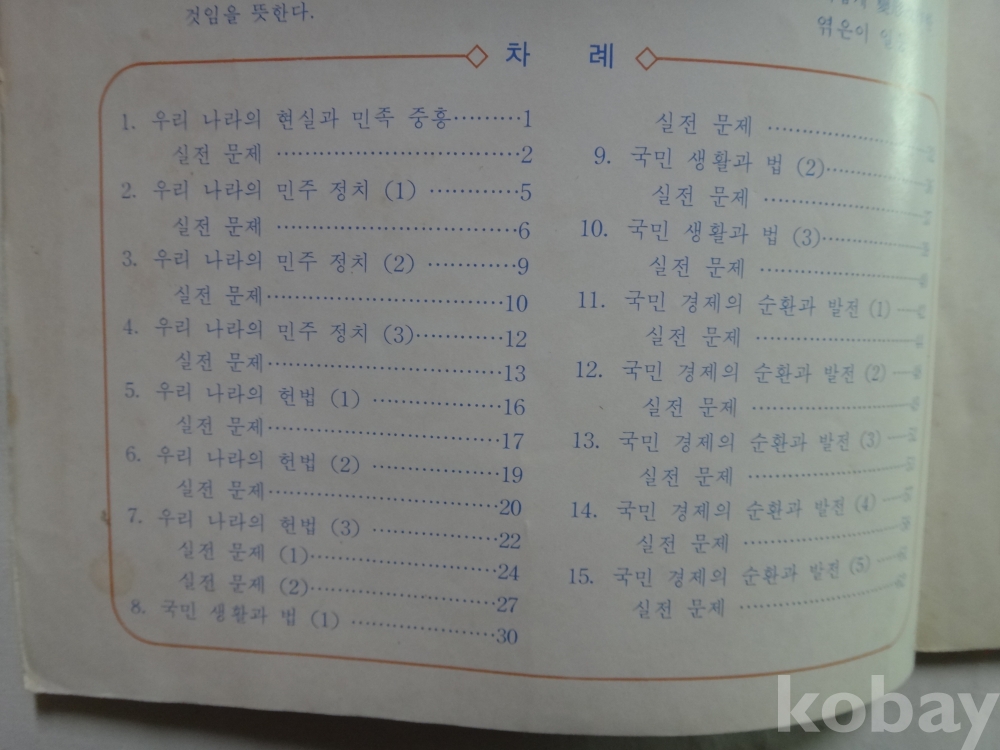 것임을 뜻한다.
엮은이
차 례
1. 우리 나라의 현실과 민족 중흥·········1
실전 문제 ······························2
2. 우리 나라의 민주 정치 (1) ···········5
실전 문제 ······························6
3. 우리 나라의 민주 정치 (2) ···········9
실전 문제······························10
4. 우리 나라의 민주 정치 (3)·············12
실전 문제······························13
5. 우리 나라의 헌법 (1) ················16
실전 문제······························17
6. 우리 나라의 헌법 (2) ················19
실전 문제······························20
7. 우리 나라의 헌법 (3) ················22
실전 문제 (1)·························24
실전 문제 (2)·························27
8. 국민 생활과 법 (1) ··················30
실전 문제 ····················
9. 국민 생활과 법 (2)·············
실전 문제 ····················
10. 국민 생활과 법 (3)·············
실전 문제 ····················
11. 국민 경제의 순환과 발전 (1)
실전 문제 ····················
12. 국민 경제의 순환과 발전 (2)
실전 문제 ····················
13. 국민 경제의 순환과 발전 (3)
실전 문제 ····················
14. 국민 경제의 순환과 발전 (4)
실전 문제 ····················
15. 국민 경제의 순환과 발전 (5)
실전 문제 ····················
kobay